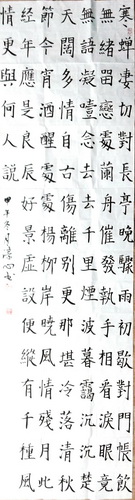 寒蟬淒切對長亭晚驟雨初歇都門帳飲
無緒留戀處蘭舟催發執手相看淚眼竟
無語凝噎念去去千里煙波暮靄沉沉楚
天闊多情自古傷離別更那堪冷落清秋
節今宵酒醒何處楊柳岸曉風殘月此去
经年應是良辰好景虛設便縱有千種風
情更與何人說
甲午